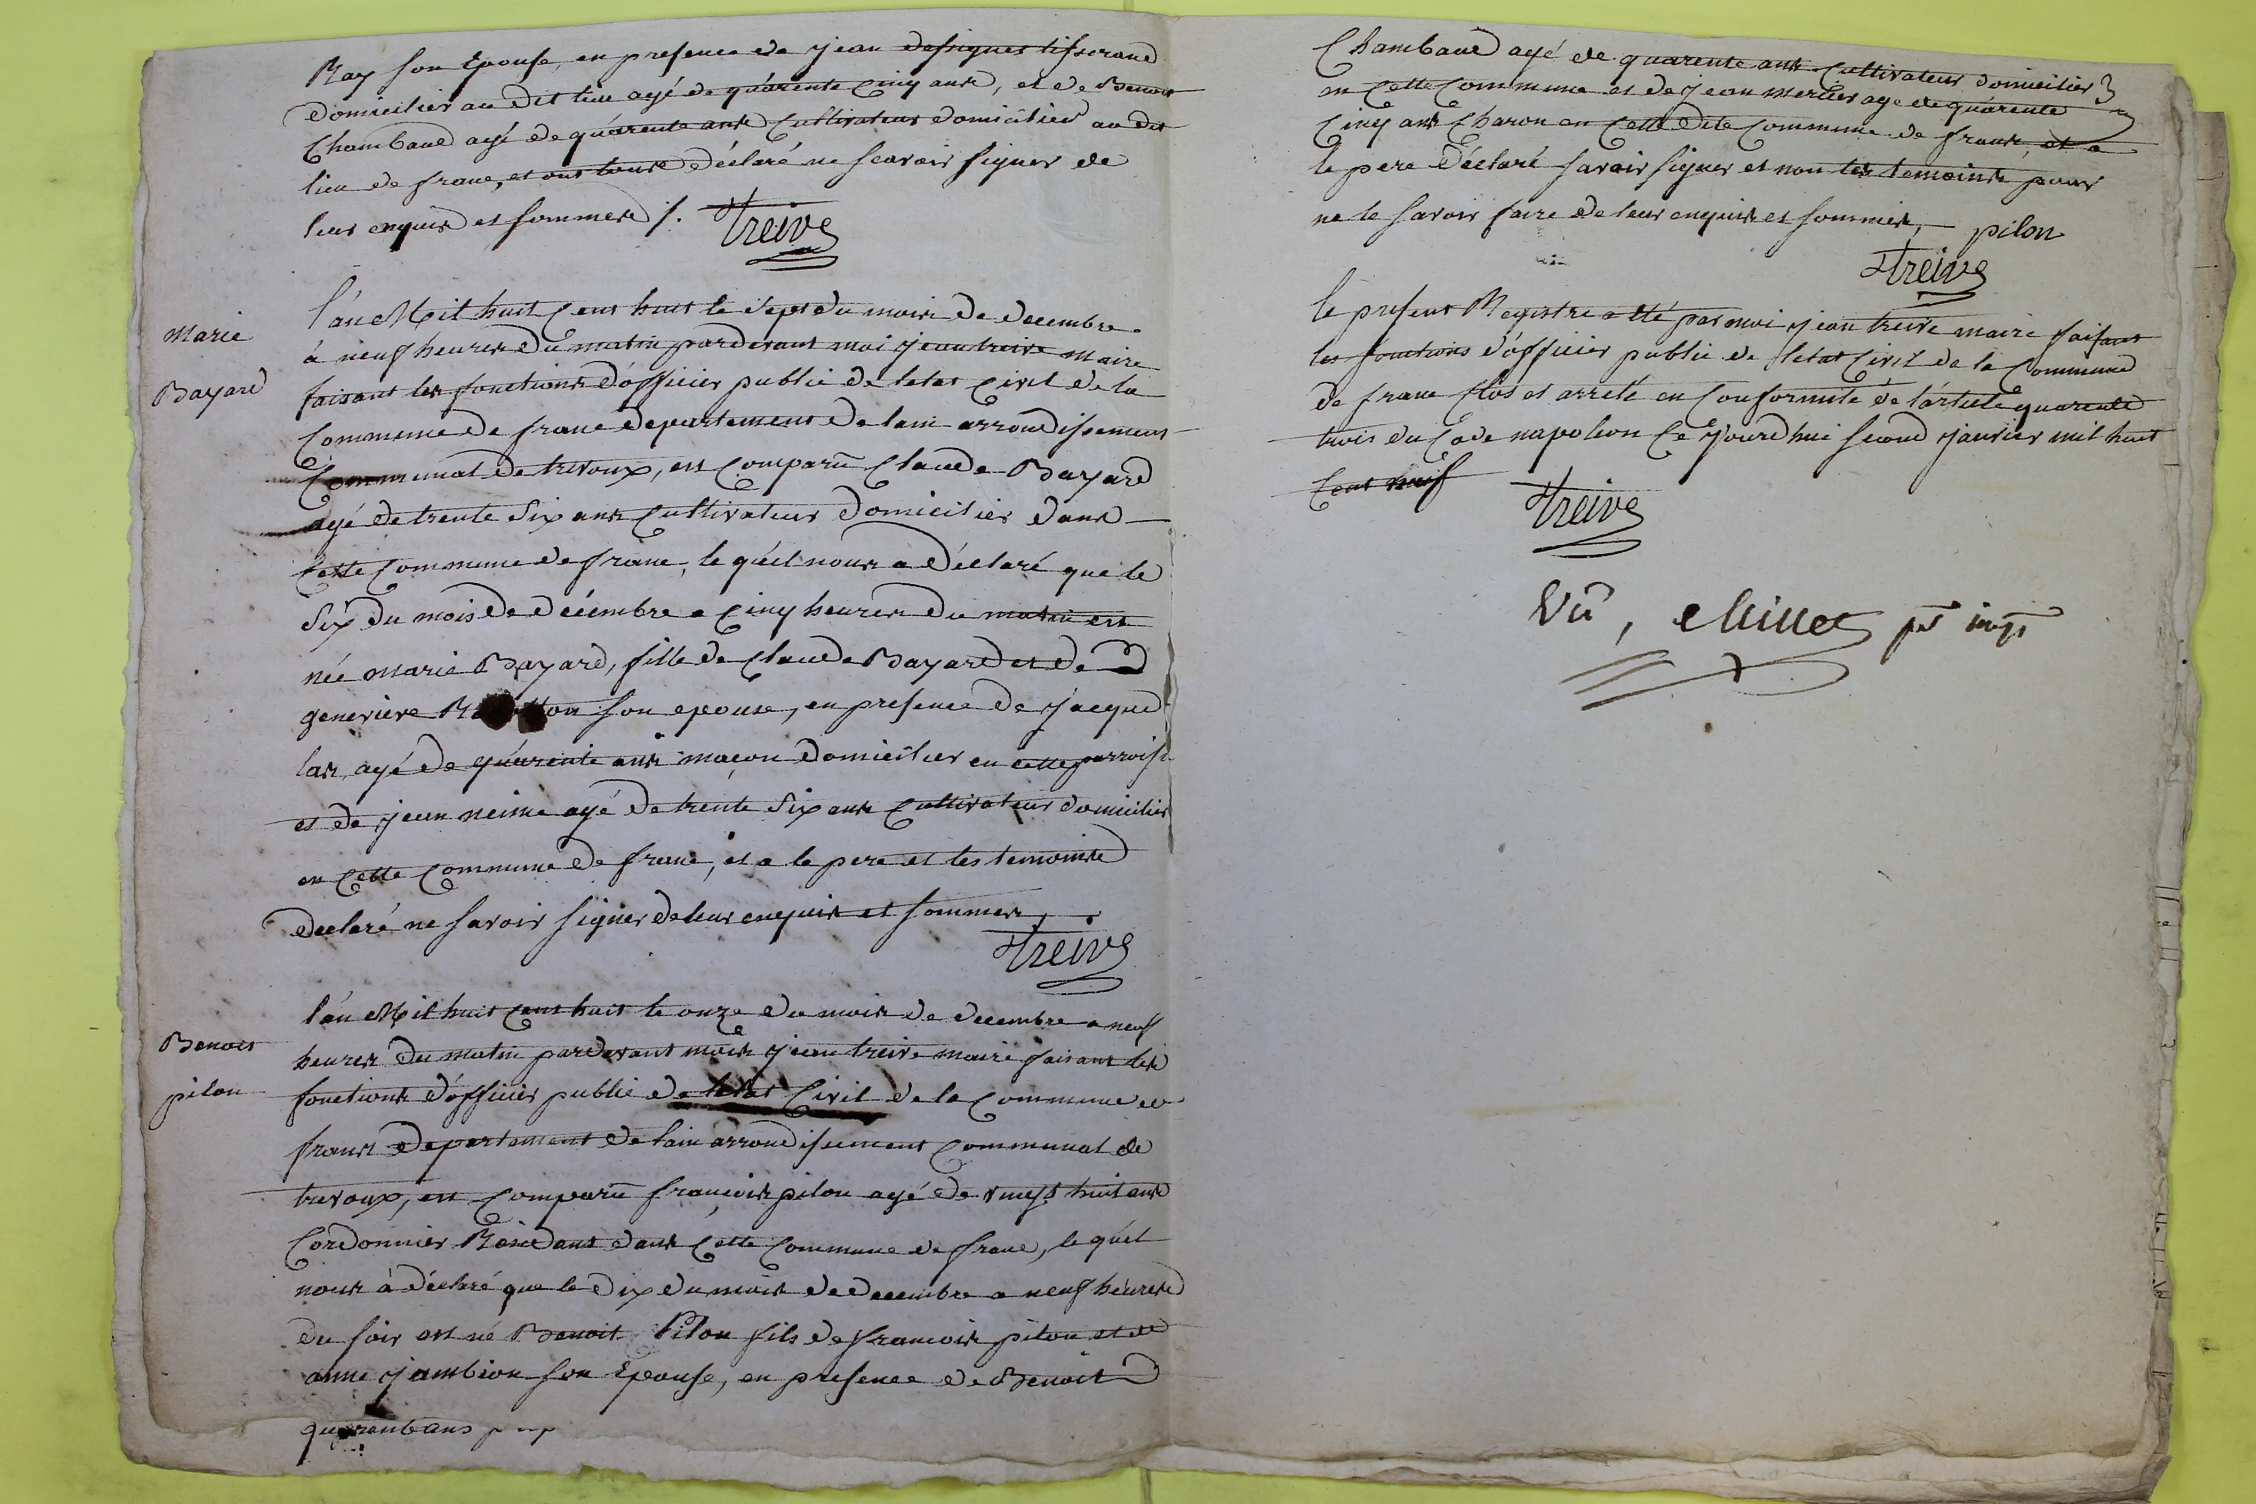 Ray son Epouse, en presence de jean dessignes tisserand
domicilier au dit lieu agé de quárente Cinq ans, et de Benoit
Chambaud agé de quárente ans Cultivateur domicilier au dit
lieu de franc, et ont tous déclaré ne scavoir signer de
leur enquis et sommes /. Treive
Marie
Bayard
l'an Mil huit Cent huit le sept du mois de decembre
à neuf heures du matin pardevant moi jean treive maire
faisant les fonctions d'officier public de letat Civil de la
Commune de franc departement de lain arrondissement
Communal de trevoux, est Comparu Claude Bayard
agé de trente six ans Cultivateur domicilier dans
Cette Commune de franc, le quél nous a déclaré que le
six du mois de décembre a Cinq heures du matin est
née marie Bayard, fille de Claude Bayard et de
genevieve son epouse, en presence de jacque
las, agé de quárente ans maçon domicilier en cette parroisse
et de jean neime agé de trente six ans Cultivateur domicilier
en Cette Commune de franc, et a le pere et les temoins
déclaré ne savoir signer de leur enquis et sommes,
Treive
Benoit
pilon
l'an Mil huit Cent huit le onze du mois de decembre a neuf
heures du matin pardevant mois jean treive maire faisant les
fonctions d'officier public de letat Civil de la Commune de
frans departement de lain arrondissement Communal de
trevoux, est Comparu françois pilon agé de vingt huit ans
Cordonnier Résidant dans Cette Commune de franc, le quél
nous à déclaré que le dix du mois de decembre a neuf heures
du soir est né Benoit Pilon fils de francois pilon et de
anne jambion son Epouse, en presence de Benoit
quarente ans
Chambaud agé de quarente ans Cultivateur domicilier
en Cette Commune et de jean mercier age de quárente
Cinq ans Charon en Cette dite Commune de frans, et a
le pere déclaré savoir signer et non les temoins pour
ne le savoir faire de leur enquis et sommés, pilon
Treive
le present Registre a été par moi jean treive maire faisant
les fonctions d'officier public de letat Civil de la Commune
de franc Clos et arreté en Conformité de l'article quarente
trois du Code napoleon Ce jourdhui second janvier mil huit
Cent neuf Treive
Vû, Millet